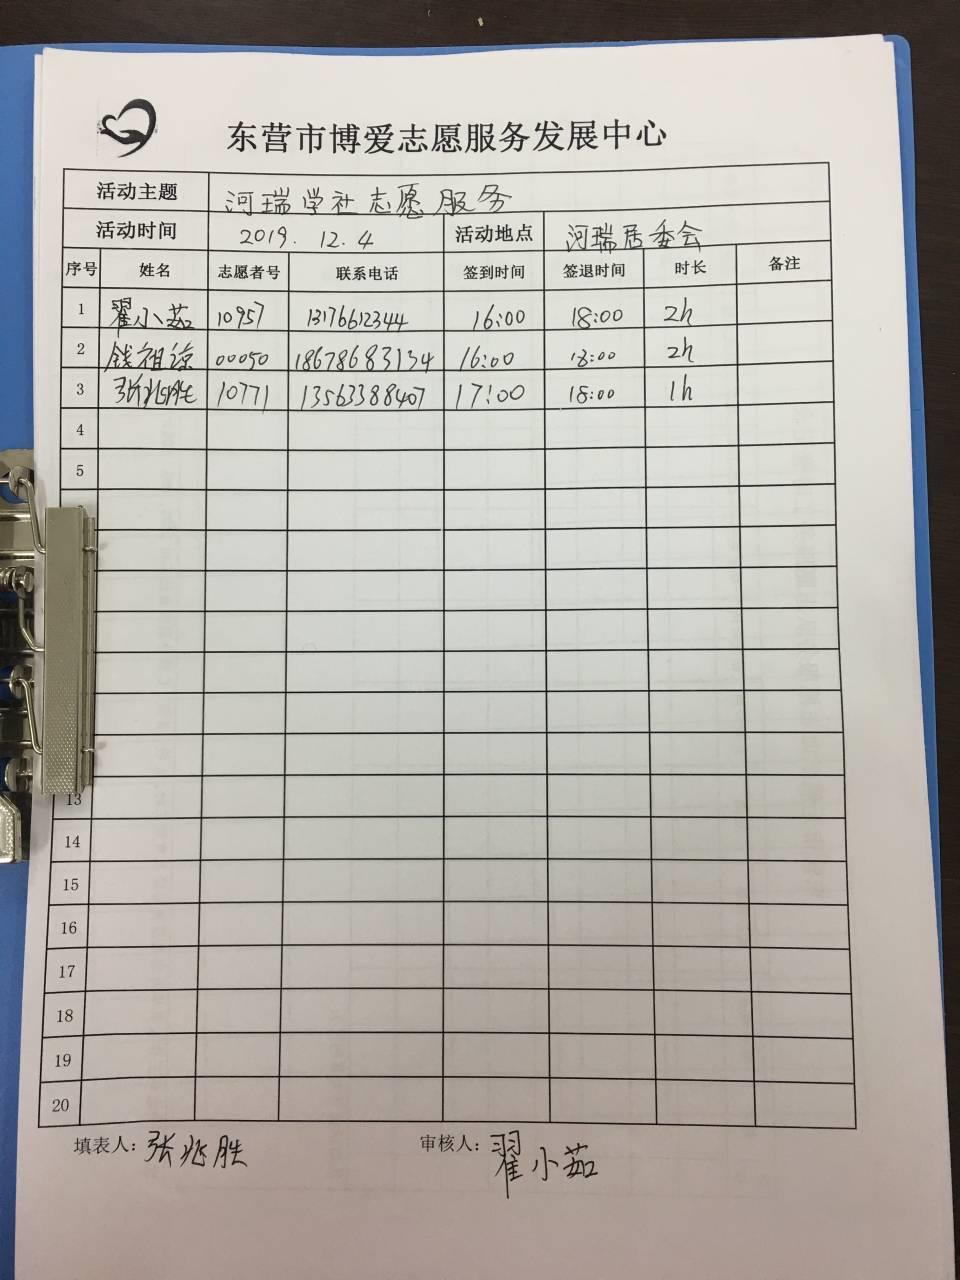 东营市博爱志愿服务发展中心
活动主题 河瑞学社志愿服务
活动时间 2019.12.4 活动地点 河瑞居委会
序号 姓名 志愿者号 联系电话 签到时间 签退时间 时长 备注
1 翟小茹 10957 13176612344 16:00 18:00 2h
2 钱祖谅 00050 18678683134 16:00 18:00 2h
3 张兆胜 10771 13563388407 17:00 18:00 1h
4
5
13
14
15
16
17
18
19
20
填表人：张兆胜 审核人：翟小茹